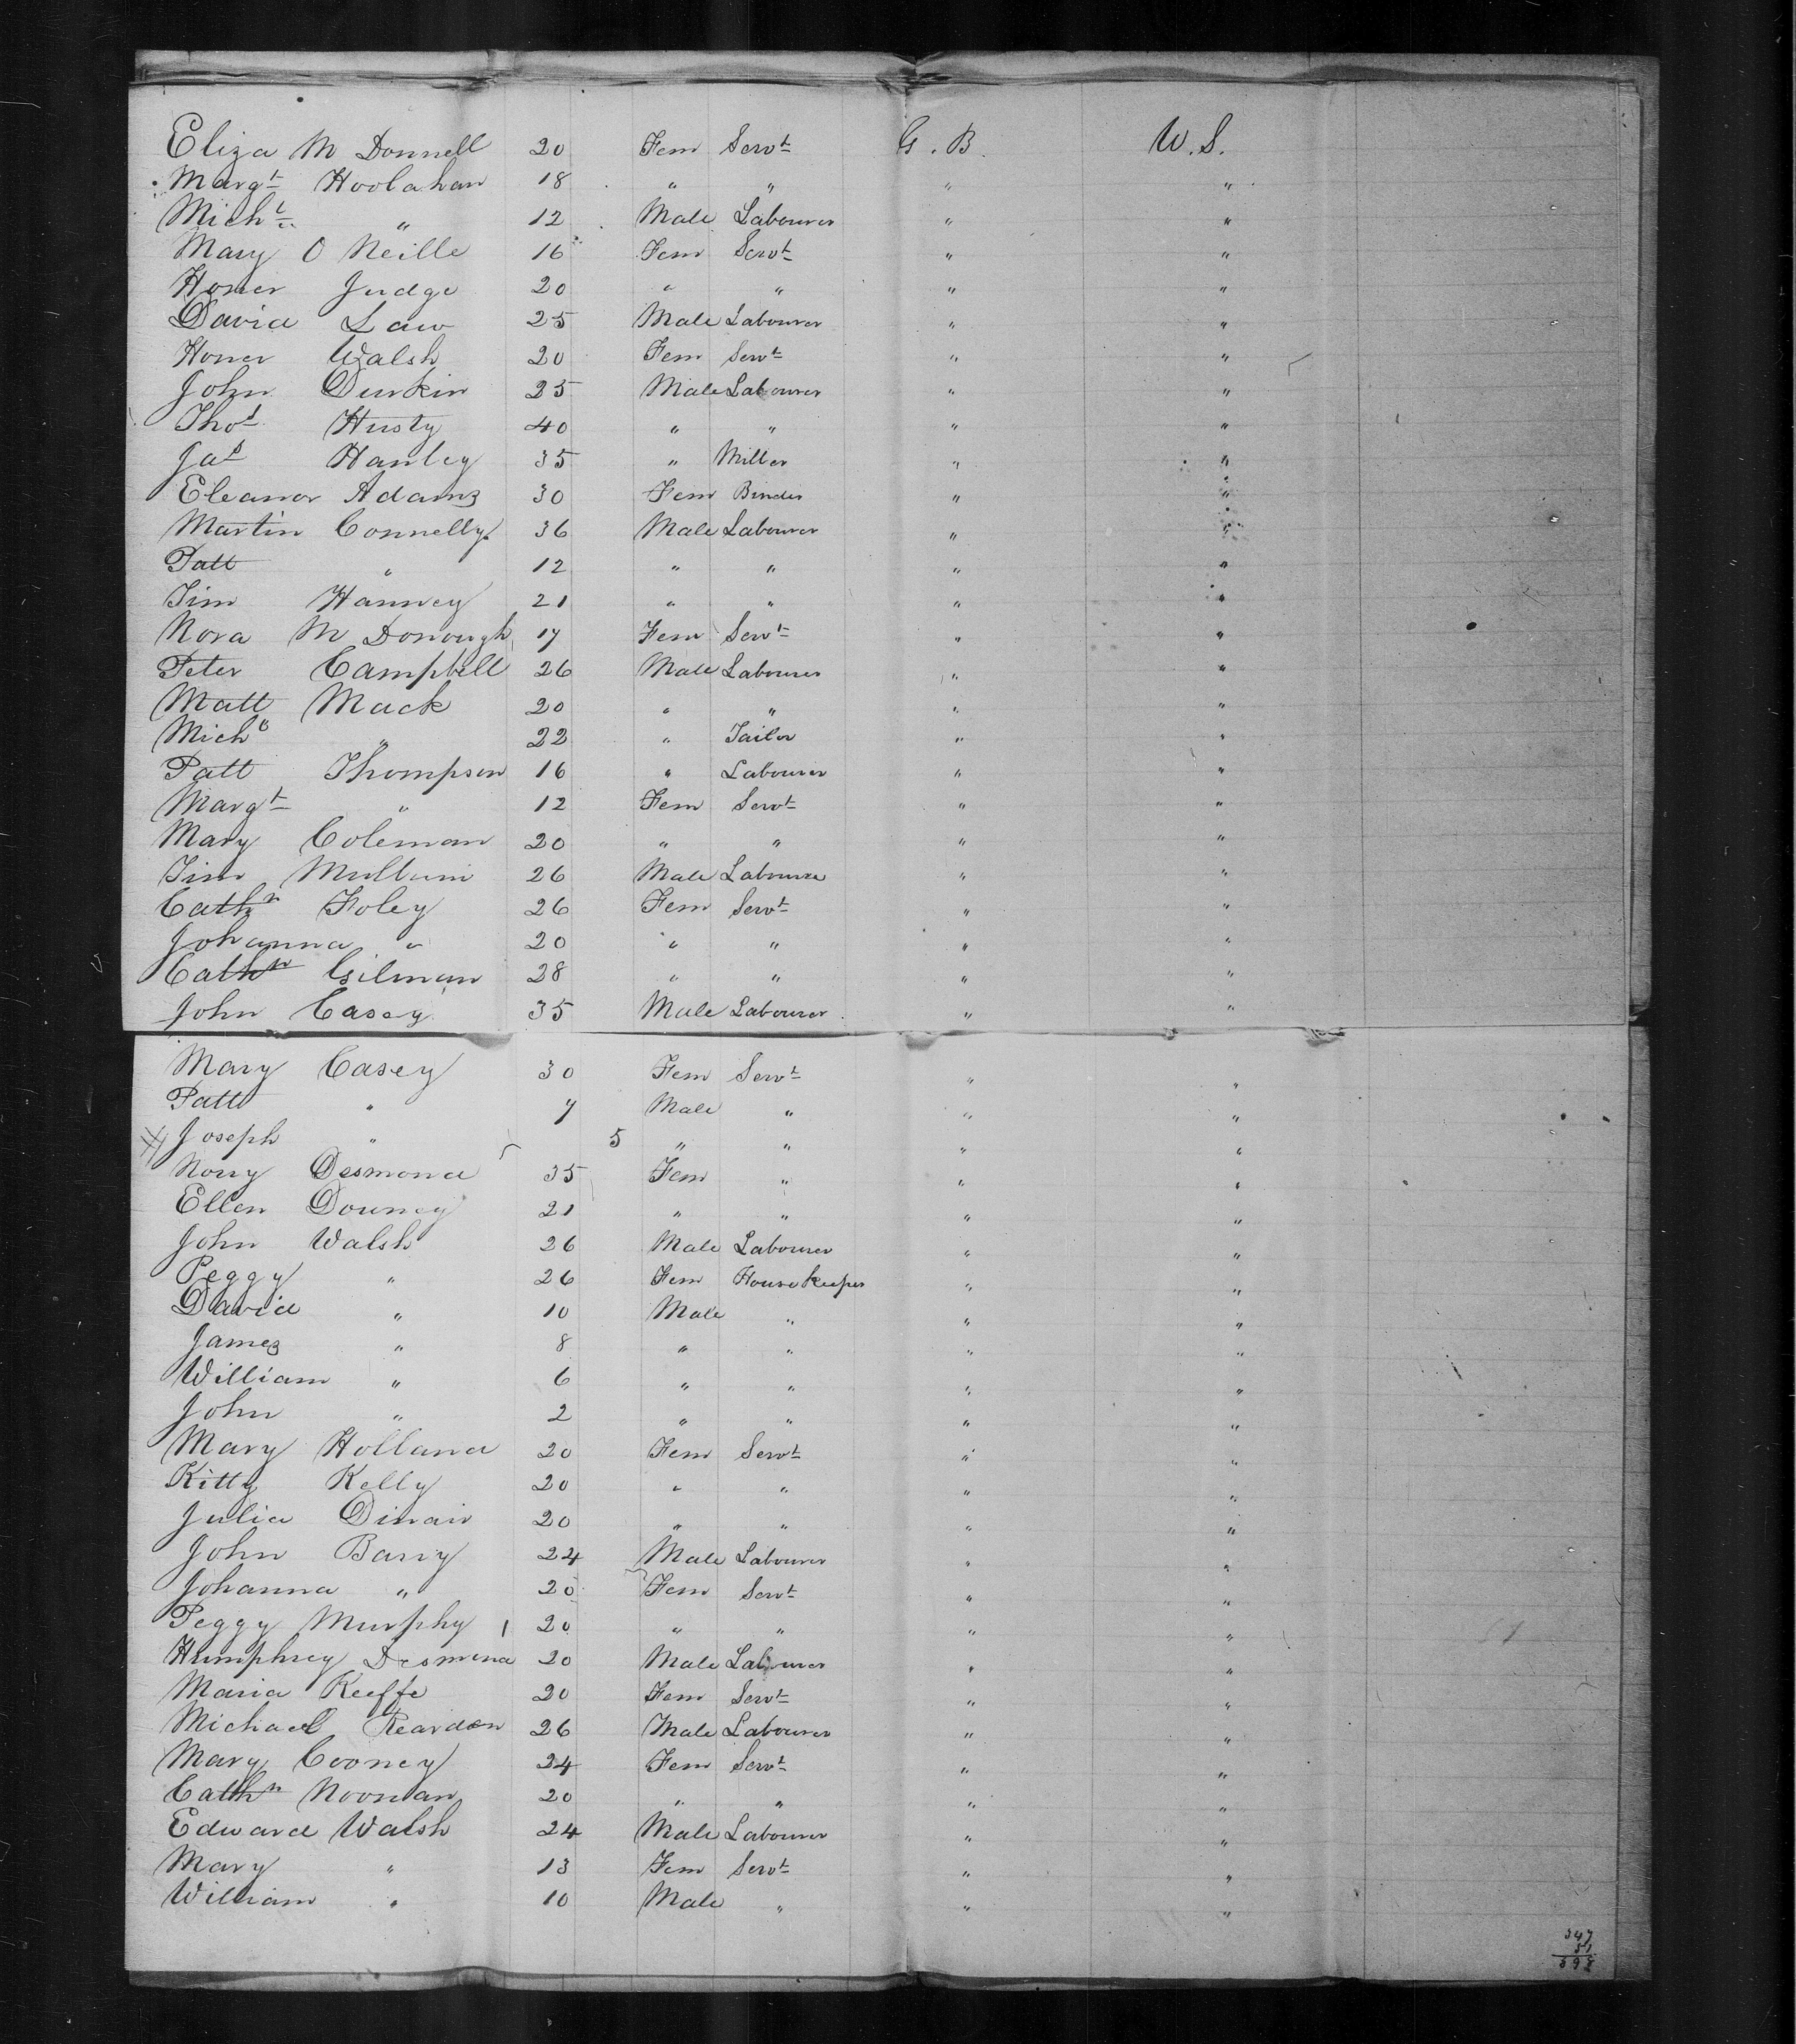 Eliza Mc Donnell 20 Fem Servt G. B. U. S.
Margt Hoolahan 18 " " " "
Michl " 12 Male Labourer " "
Mary O Neille 16 Fem Servt " "
Honer Judge 20 " " " "
David Law 25 Male Labourer " "
Honer Walsh 20 Fem Servt " "
John Durkin 25 Male Labourer " "
Thos Husty 40 " " " "
Jas Hanley 35 " Miller " "
Eleanor Adams 30 Fem Binder " "
Martin Connelly 36 Male Labourer " "
Patt " 12 " " " "
Tim Hanney 21 " " " "
Nora Mc Donough 17 Fem Servt " "
Peter Campbell 26 Male Labourer " "
Matt Mack 20 " " " "
Michl " 22 " Tailor " "
Patt Thompson 16 " Labourer " "
Margt " 12 Fem Servt " "
Mary Coleman 20 " " " "
Tim 26 Male Labourer " "
Cathn Foley 26 Fem Servt " "
Johanna " 20 " " " "
Cathn Gilman 28 " " " "
John Casey 35 Male Labourer " "
Mary Casey 30 Fem Servt " "
Patt " 7 Male " " "
Joseph " 5 " " " "
Norry Desmond 35 Fem " " "
Ellen Downey 21 " " " "
John Walsh 26 Male Labourer " "
Peggy " 26 Fem House Keeper " "
David " 10 Male " " "
James " 8 " " " "
William " 6 " " " "
John " 2 " " " "
Mary Holland 20 Fem Servt " "
Kitty Kelly 20 " " " "
Julia Dinair 20 " " " "
John Barry 24 Male Labourer " "
Johanna " 20 Fem Servt " "
Peggy Murphy 20 " " " "
Humphrey Desmond 20 Male Labourer " "
Maria Keeffe 20 Fem Servt " "
Michael Reardon 26 Male Labourer " "
Mary Cooney 24 Fem Servt " "
Cathn Noonan 20 " " " "
Edward Walsh 24 Male Labourer " "
Mary " 13 Fem Servt " "
William " 10 Male " " "
347
51
398